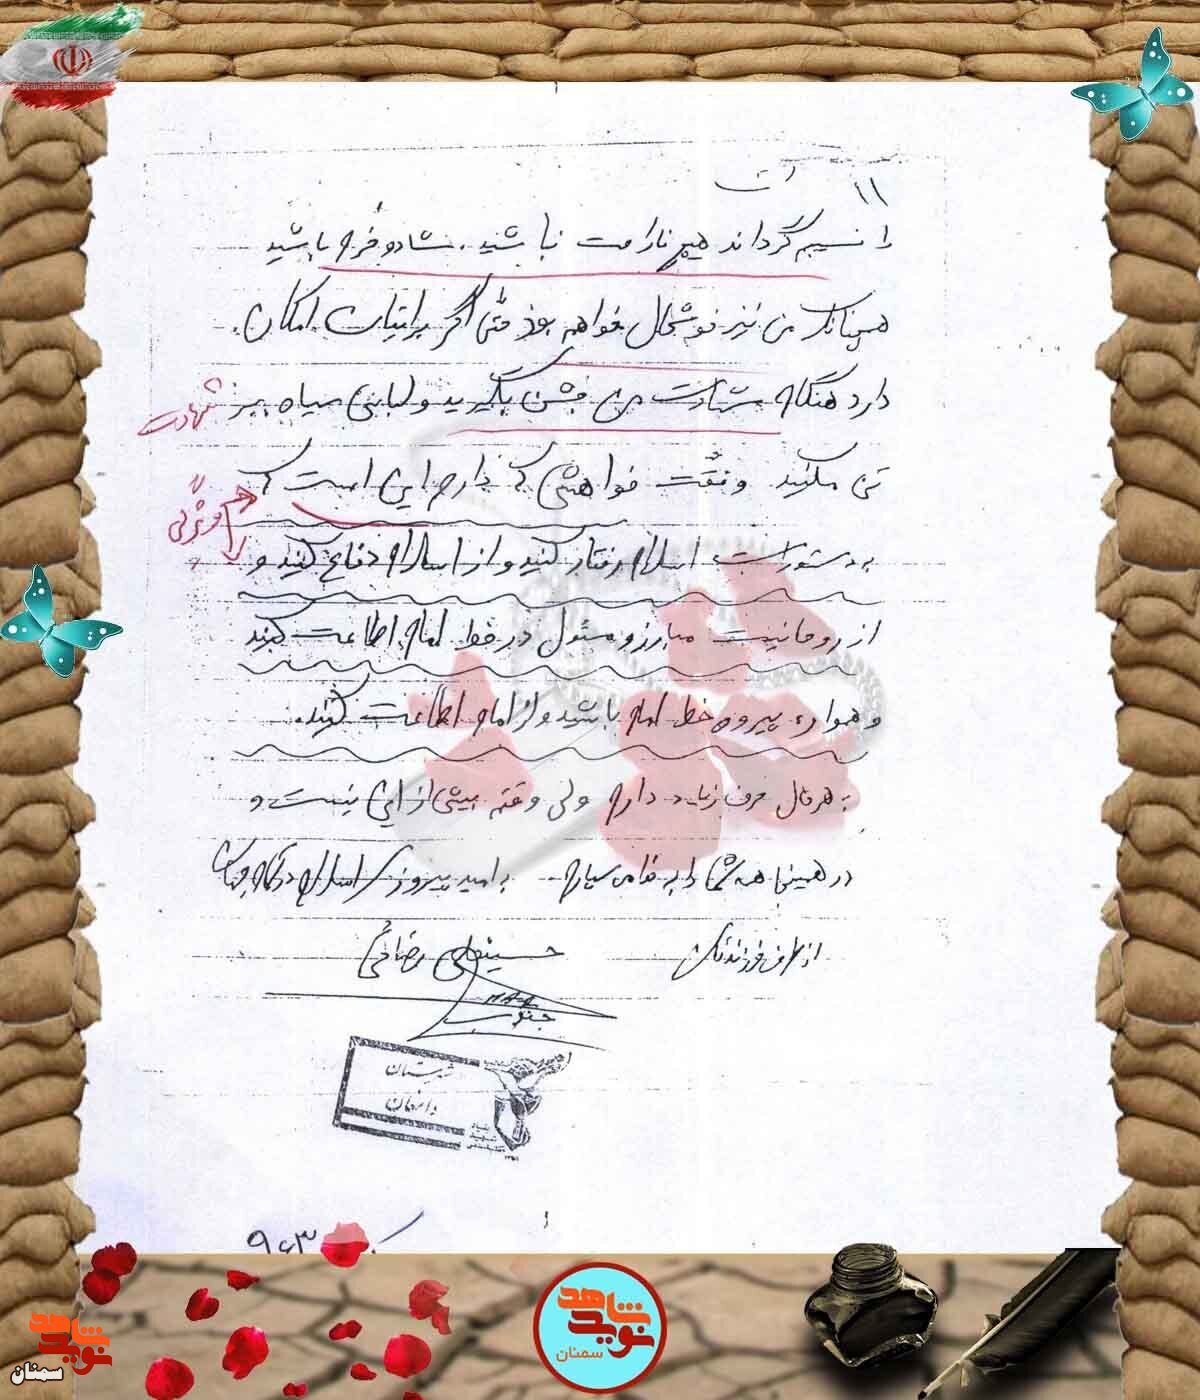 را نسیم گرداند هیچ ناراحت نباشید. شاد و خرم باشید
همچنانکه من نیز خوشحال خواهم بود حتی اگر برایتان امکان
دارد هنگام شهادت من جشن بگیرید و لباس سیاه بر
شهادت
تن مکنید و فقط خواهشی که دارم این است که
ویژگی
به دستورات اسلام رفتار کنید و از اسلام دفاع کنید و
از روحانیت مبارز و مسئول در خط امام اطاعت کنید
و همواره پیرو خط امام باشید و از امام اطاعت کنید.
به هر حال حرف زیاد دارم ولی وقتم بیش از این نیست و
در همینجا همه شما را به خدا می سپارم به امید پیروزی اسلام در تمام جهان
از طرف فرزندتان
حسینعلی رضائی
جنوب
شهرستان
دامغان
۹۶۳
نوید شاهد
سمنان
نوید شاهد
سمنان